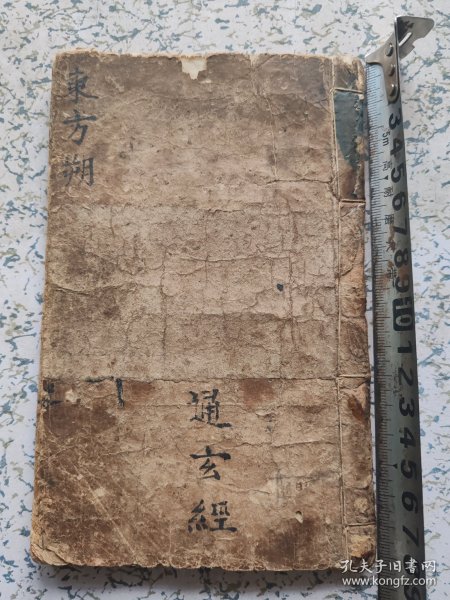 東方朔
通玄經
5m
3 4 5 6 7 8 9 10 1 2 3 4 5 6 7 8 9
孔夫子旧书网
www.kongfz.com